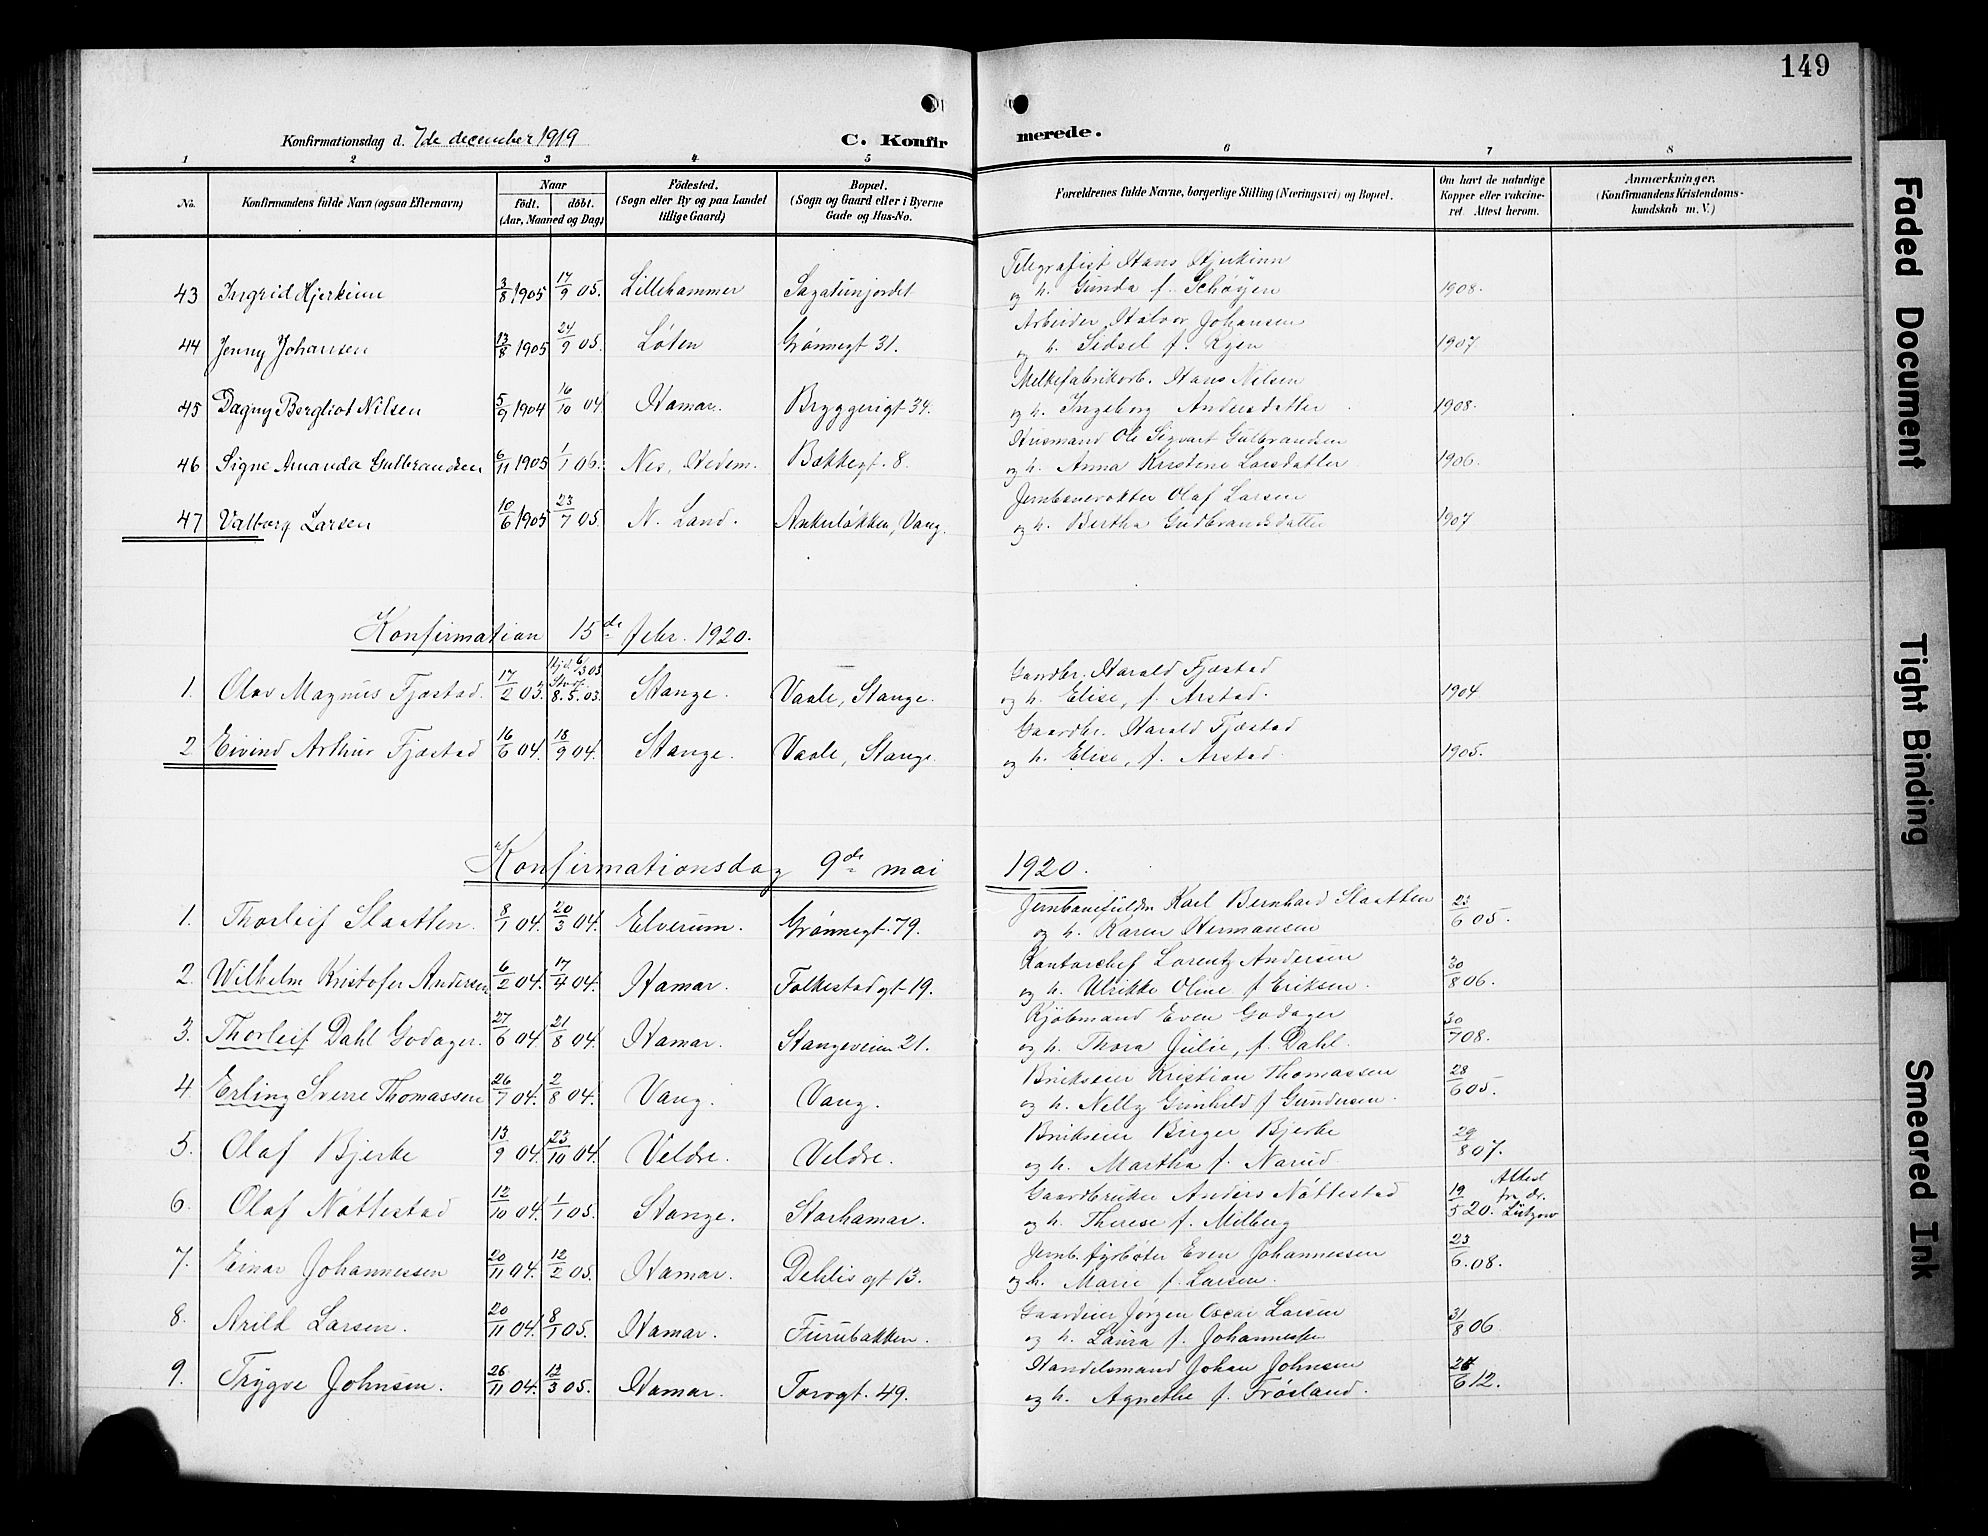 149
Konfirmationsdag d. 7de december 1919
C. Konfirmerede.
1 2 3 4 5 6 7 8
No. Konfirmandens fulde Navn (ogsaa Efternavn) Naar födt. döbt. (Aar, Maaned og Dag) Födested. (Sogn eller By og paa Landet tillige Gaard) Bopæl. (Sogn og Gaard eller i Byerne Gade og Hus-No. Forældrenes fulde Navne, borgerlige Stilling (Næringsvei) og Bopæl. Om havt de naturlige Kopper eller vakcineret. Attest herom. Anmærkninger. (Konfirmandens Kristendomskundskab m. V.)
Telegrafist Hans Hjerkinn
43 Ingrid Hjerkinn 3/8 1905 17/9 05. Lillehammer Sagatunjordet og h. Gunda f. Schøyen 1908.
Arbeider Halvor Johansen
44 Jenny Johansen 13/8 1905 24/9 05. Løten Grønnegt 31. og h. Sidsel f. Ryen 1907
Melkefabrikarb. Hans Nilsen
45 Dagny Bergliot Nilsen 5/9 1904 16/10 04. Hamar. Bryggerigt 34. og h. Ingeborg Andersdatter 1908.
Husmand Ole Sigvart Gulbrandsen
46 Signe Amanda Gulbrandsen 6/11 1905 1/1 06. Nes, Hedem. Bekkegt. 8. og h. Anna Kristene Larsdatter 1906.
Jernbanevokter Olaf Larsen
47 Valborg Larsen 10/6 1905 23/7 05. N. Land. Ankerløkken, Vang. og h. Bertha Gudbrandsdatter 1907
Konfirmation 15de febr. 1920.
Gaardbr. Harald Fjæstad
1. Olav Magnus Fjæstad. 17/2 03. Hjd. 6/3 03 Stadf. 8.5.03. Stange. Vaale, Stange. og h. Elise, f. Arstad. 1904
Gaardbr. Harald Fjæstad
2 Eivind Arthur Fjæstad 16/6 04. 18/9 04. Stange. Vaale, Stange. og h. Elise, f. Arstad. 1905.
Konfirmationsdag 9de mai 1920.
Jernbanefuldm Karl Bernhard Slaatten
1. Thorleif Slaatten. 8/1 04. 20/3 04. Elverum. Grønnegt. 79. og h. Karen Hermansen 23/6 05.
Kontorchef Lorentz Andersen
2. Wilhelm Kristofer Andersen 6/2 04. 17/4 04. Hamar. Folkestadgt 19. og h. Ulrikke Oline f. Eriksen. 30/8 06.
Kjøbmand Even Godager
3. Thorleif Dahl Godager. 27/6 04 21/8 04. Hamar. Stangeveien 21. og h. Thora Julie, f. Dahl. 30/7 08.
Brukseier Kristian Thomassen
4. Erling Sverre Thomassen 26/7 04. 2/8 04. Vang. Vang. og h. Nelly Gunhild f Gundersen. 28/6 05.
Brukseier Birger Bjerke
5. Olaf Bjerke 13/9 04. 23/10 04. Veldre. Veldre. og h. Martha f. Narud. 29/8 07.
Gaardbruker Anders Nøttestad
6. Olaf Nøttestad 12/10 04. 1/1 05. Stange. Storhamar. og h. Therese f. Milberg 19/5 20. Attest fra dr. Lützow
Jernb. fyrbøter Even Johannessen
7. Einar Johannessen 20/11 04. 12/2 05. Hamar. Dehlis gt 13. og h. Marie f. Larsen. 23/6.08.
Gaardeier Jørgen Oscar Larsen
8. Arild Larsen. 20/11 04. 8/1 05. Hamar. Furubakken. og h. Laura f. Johannesen 31/8 06
Handelsmand Johan Johnsen
9. Trygve Johnsen. 26/11 04. 12/3 05. Hamar. Torvgt. 49. og h. Agnethe f. Frøsland. 26/6 12.
Faded Document
Tight Binding
Smeared Ink